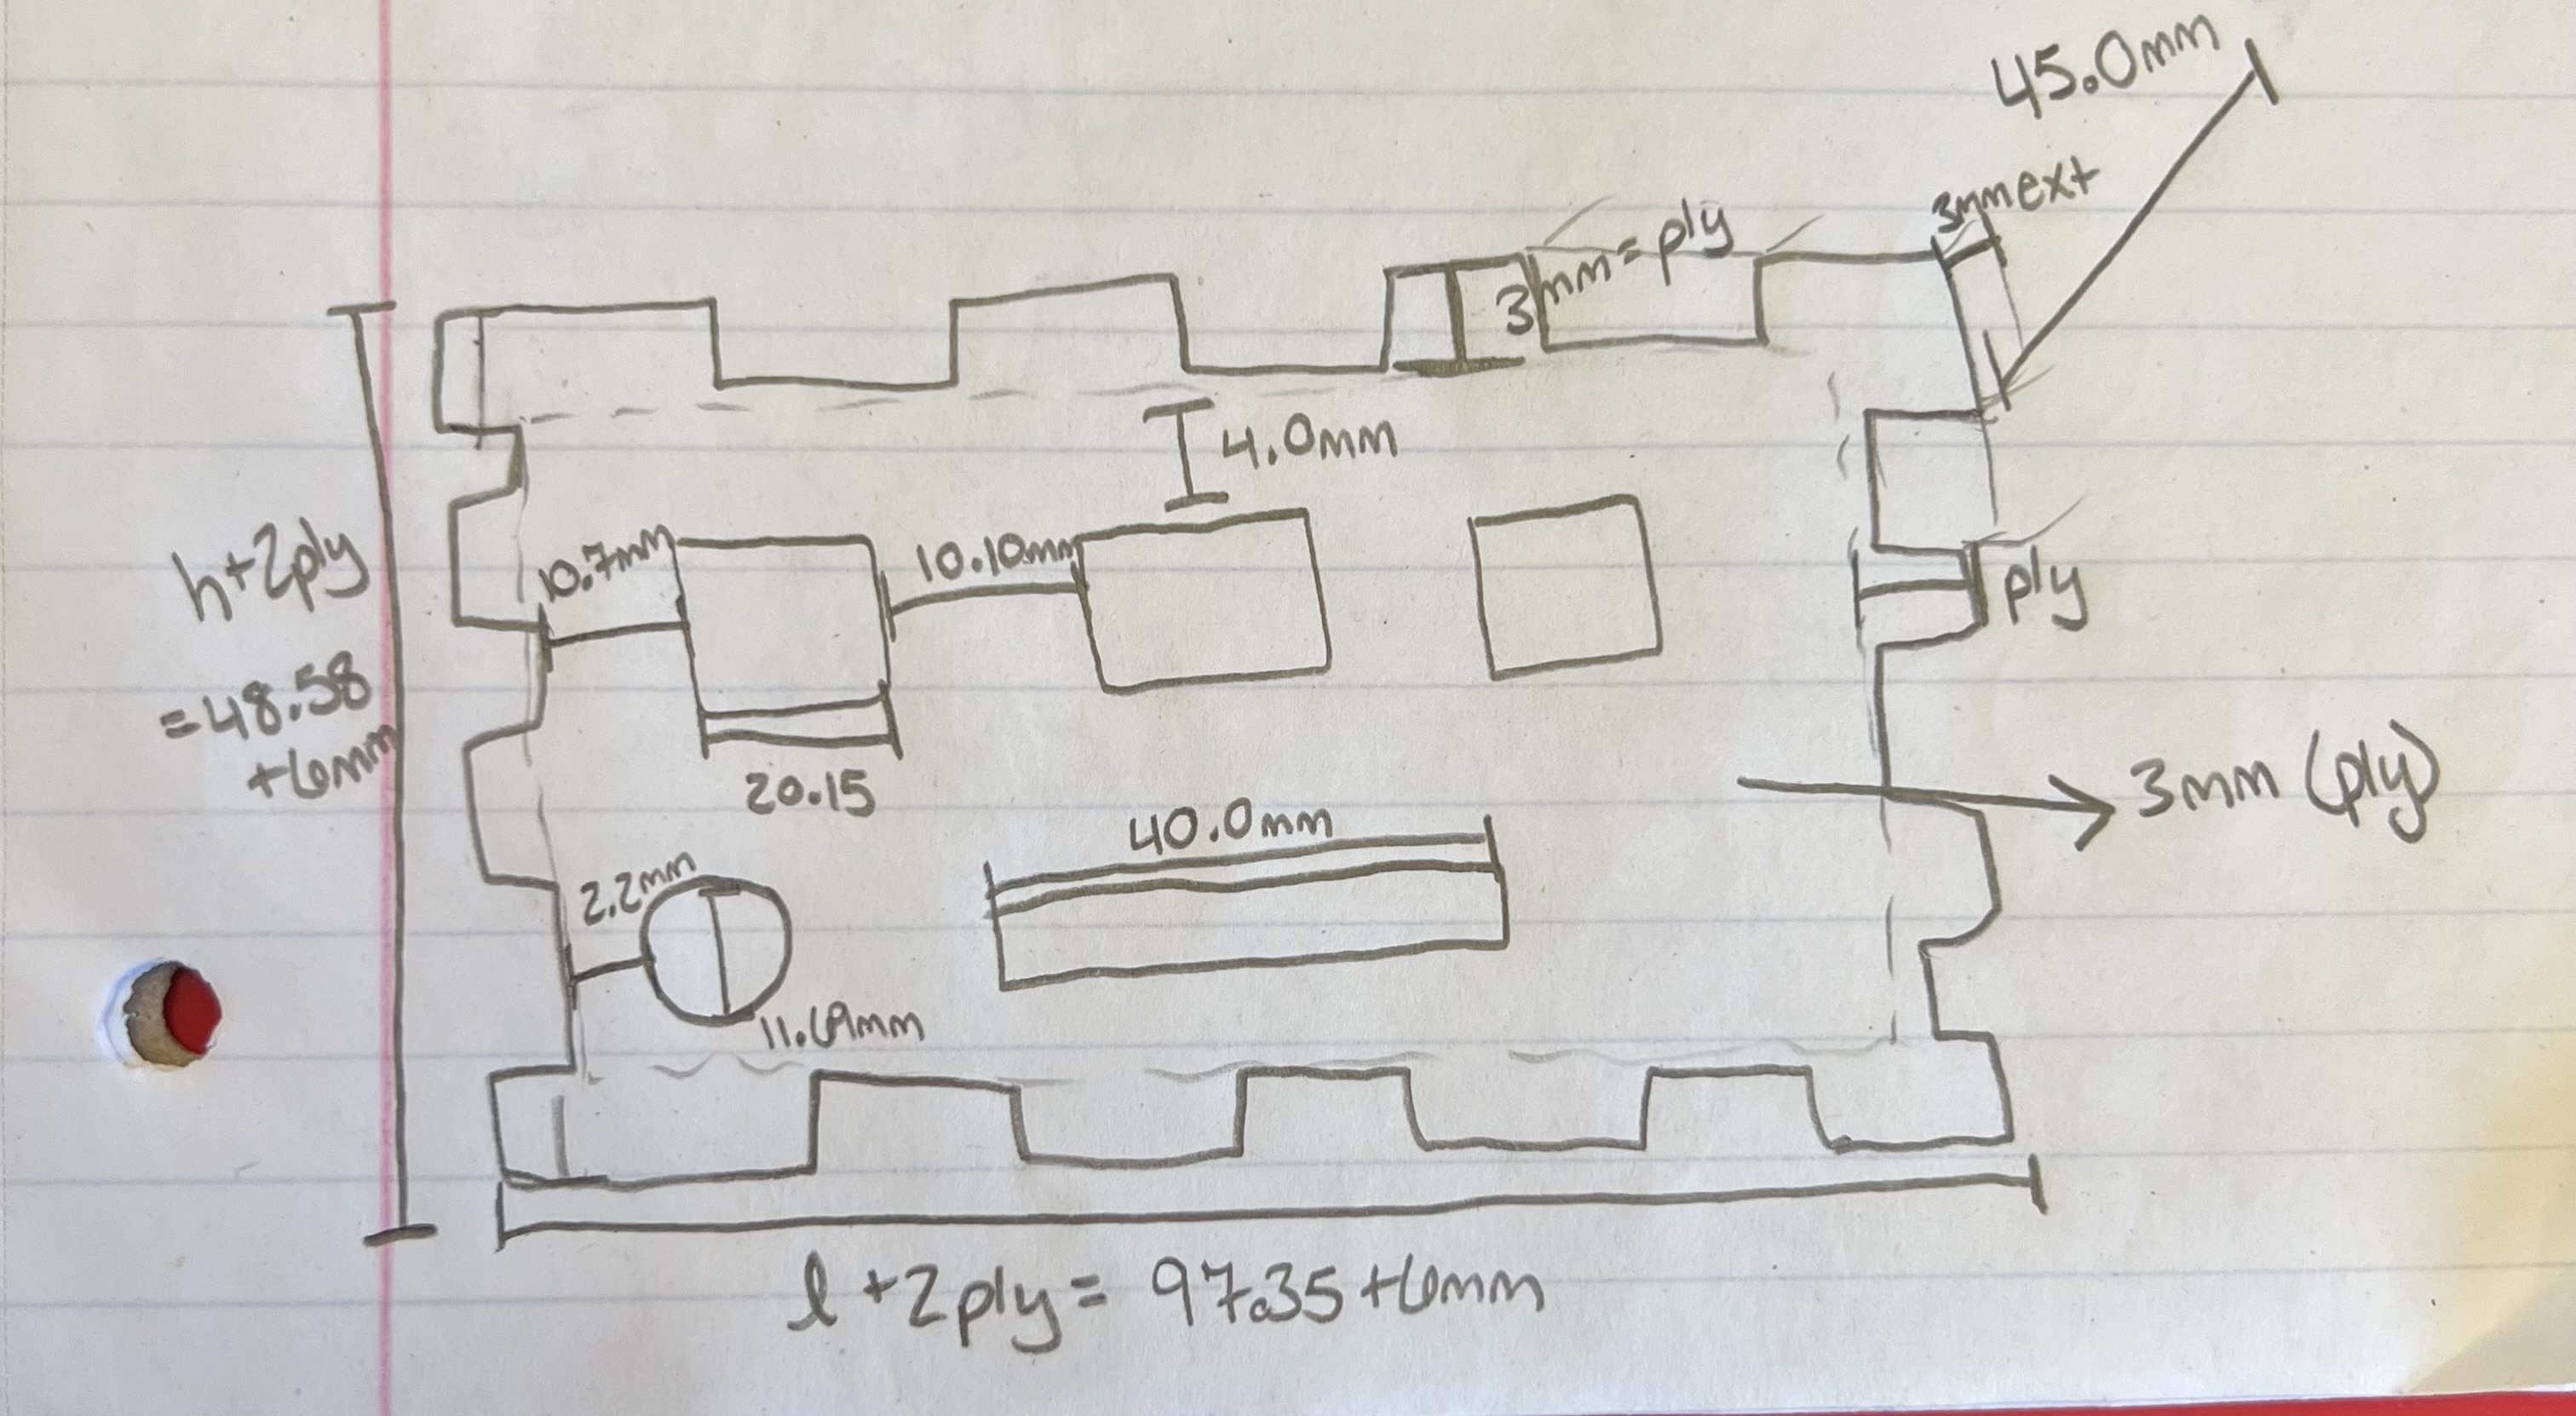 45.0mm
3mm ext
3mm = ply
4.0mm
h+2ply
= 48.58
+6mm
10.7mm
10.10mm
ply
20.15
3mm (ply)
40.0mm
2.2mm
11.69mm
l + 2ply = 97.35 + 6mm